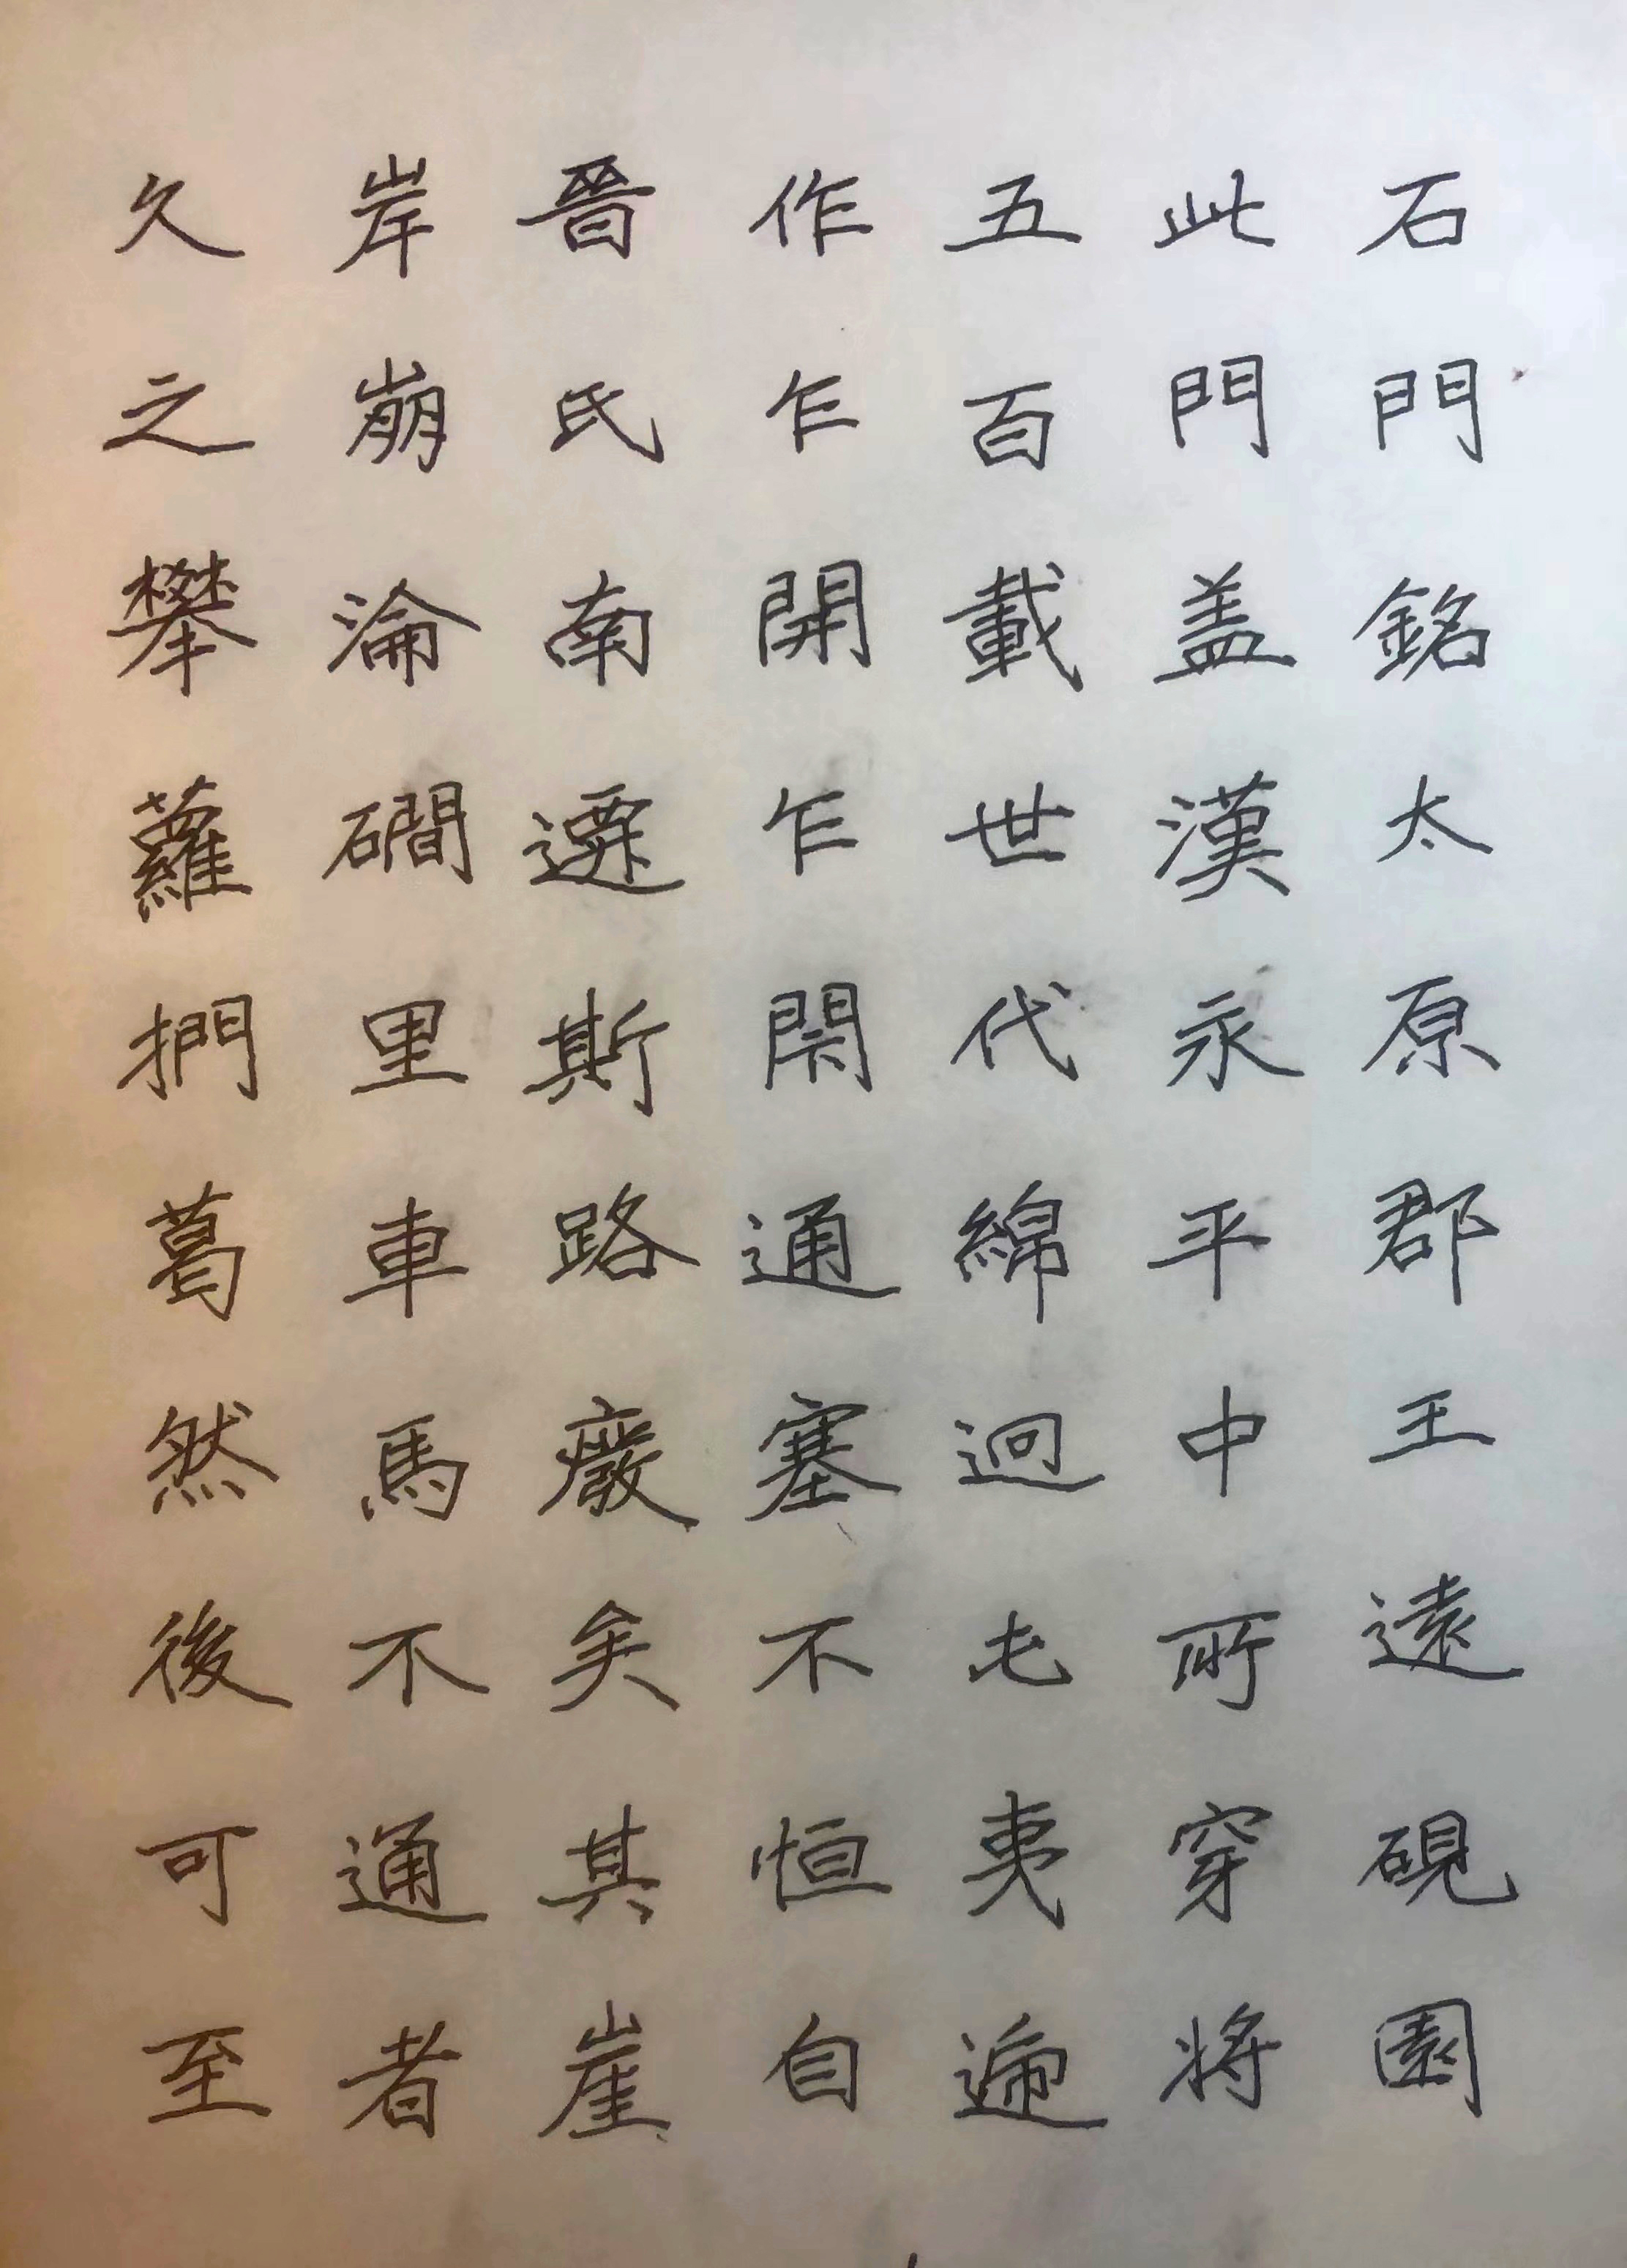 石門銘太原郡王遠硯園
此門盖漢永平中所穿將
五百載世代綿迥屯夷遞
作乍開乍閇通塞不恒自
晉氏南遷斯路廢矣其崖
岸崩淪磵里車馬不通者
久之攀蘿捫葛然後可至